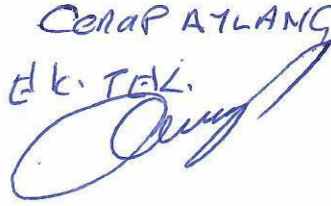 CENAP AYLANÇ
EK. TEK.